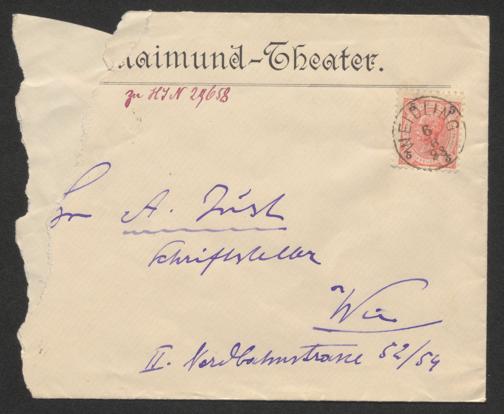 Raimund-Theater.
zu HIN 29658
MEIDLING
6
Hr A. Just
Schriftsteller
Wien
II. Nordbahnstrasse 52/54